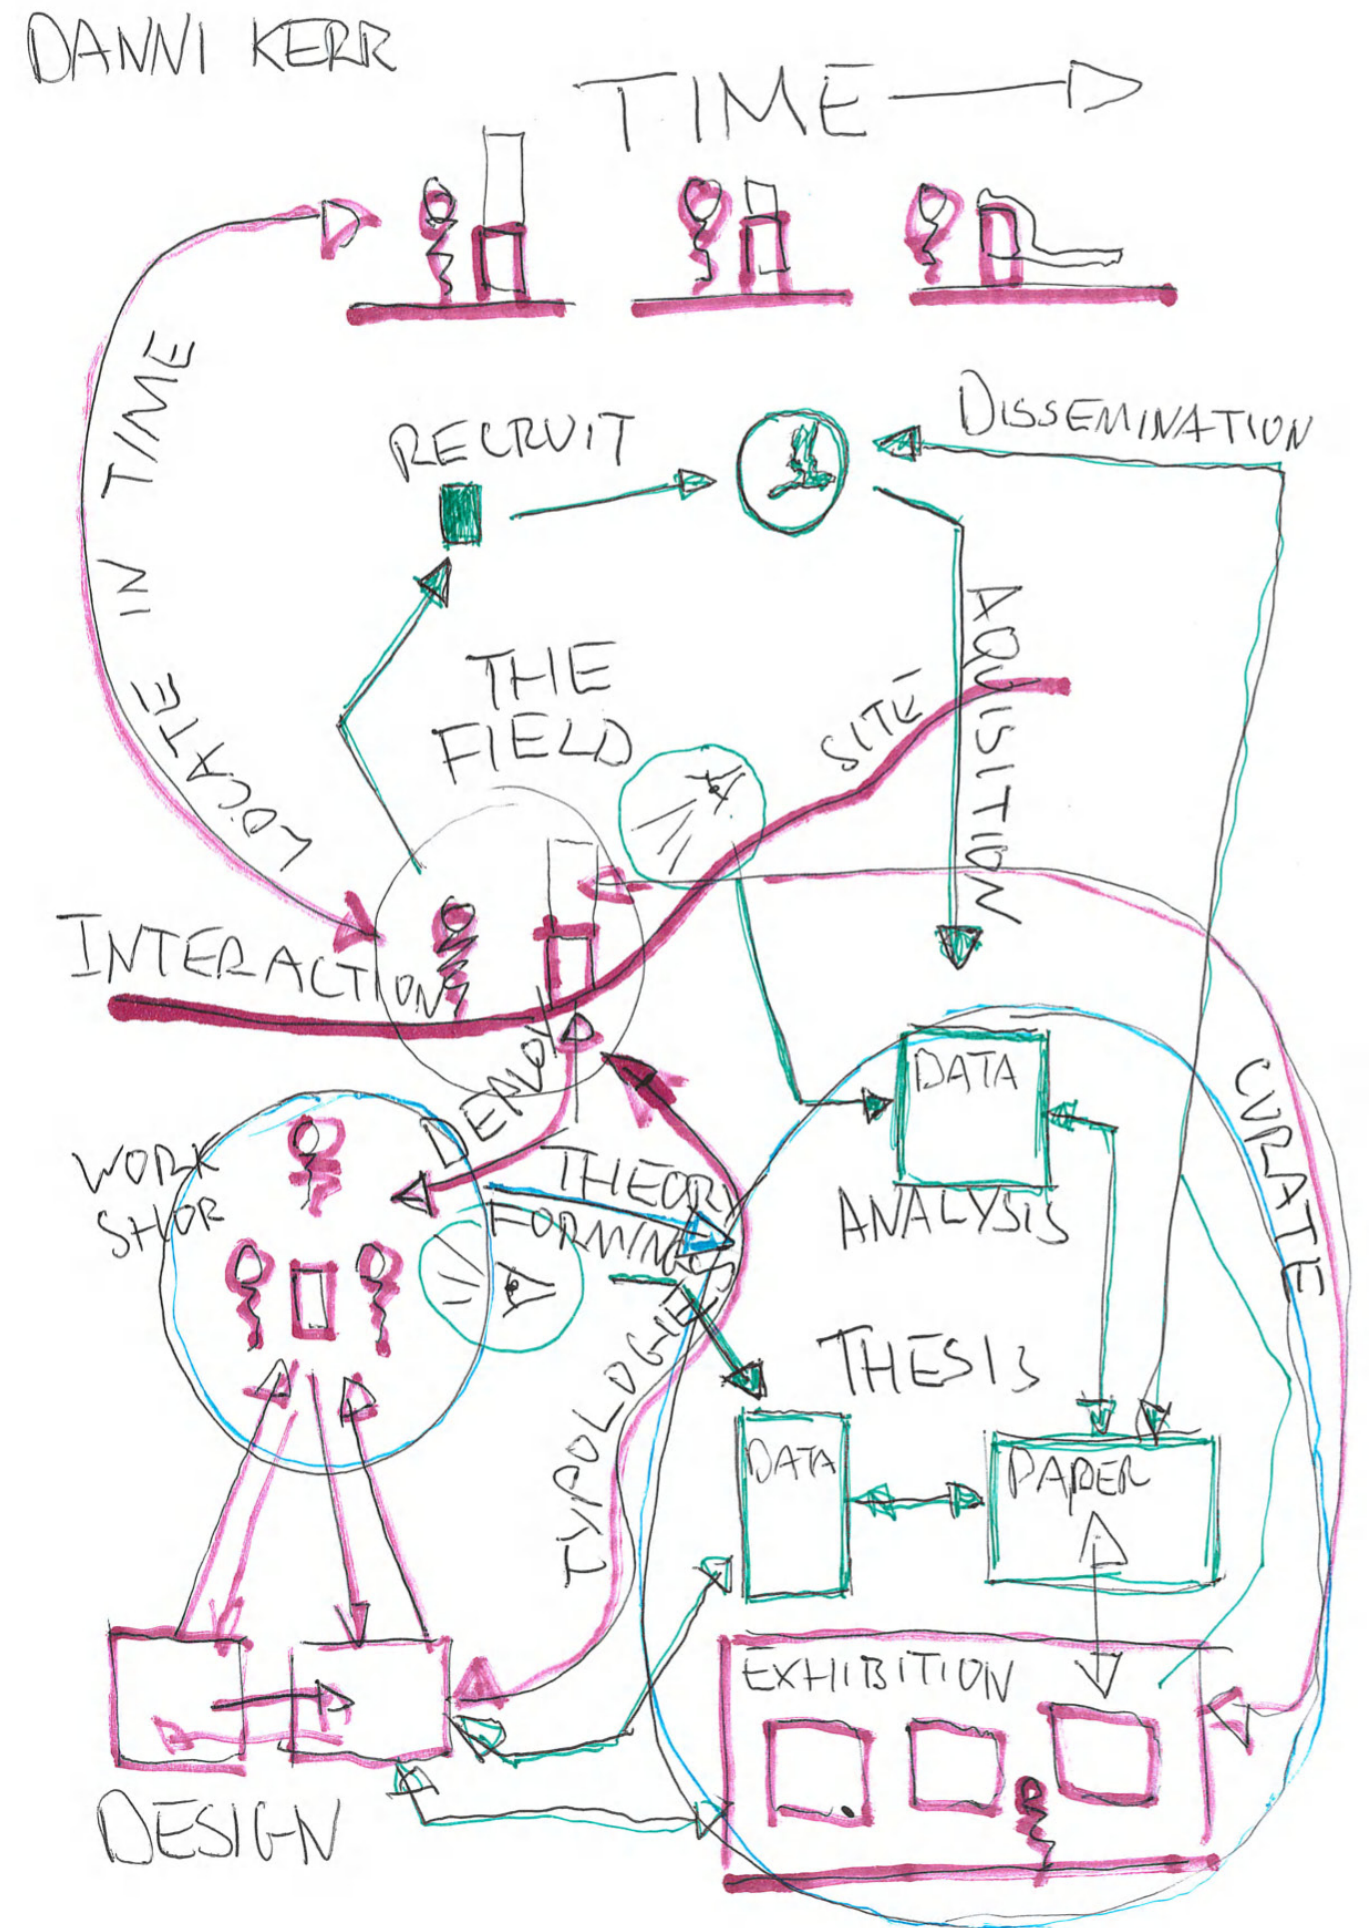 DANNI KERR
TIME
LOCATE IN TIME
RECRUIT
DISSEMINATION
AQUISITION
THE
FIELD
SITE
INTERACTION
DEPLOY
WORK
SHOP
THEORY
FORMING
TYPOLOGIES
DATA
ANALYSIS
CURATE
THESIS
DATA
PAPER
EXHIBITION
DESIGN